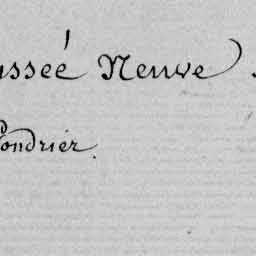 usseé Neuve).
Pondrier.